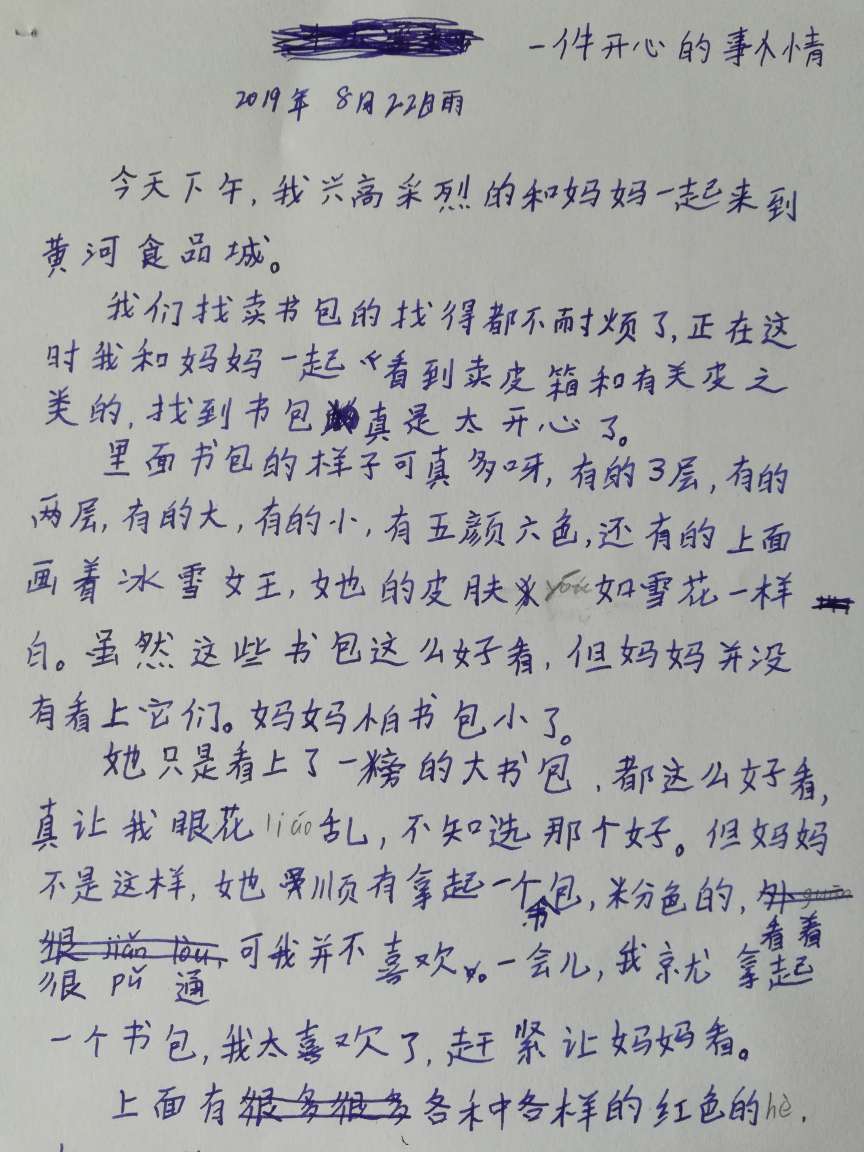 一件开心的事情
2019年 8月22日雨
今天下午，我兴高采烈的和妈妈一起来到
黄河食品城。
我们找卖书包的找得都不耐烦了，正在这
时我和妈妈一起看到卖皮箱和有关皮之
类的，找到书包真是太开心了。
里面书包的样子可真多呀，有的3层，有的
两层，有的大，有的小，有五颜六色，还有的上面
画着冰雪女王，她的皮肤如雪花一样
白。虽然这些书包这么好看，但妈妈并没
有看上它们。妈妈怕书包小了。
她只是看上了一旁的大书包，都这么好看，
真让我眼花liáo乱，不知选那个好。但妈妈
不是这样，她顺有拿起一个书包，粉色的，
看着
很pǔ通 可我并不喜欢。一会儿，我就拿起
一个书包，我太喜欢了，赶紧让妈妈看。
上面有各种各样的红色的hè，